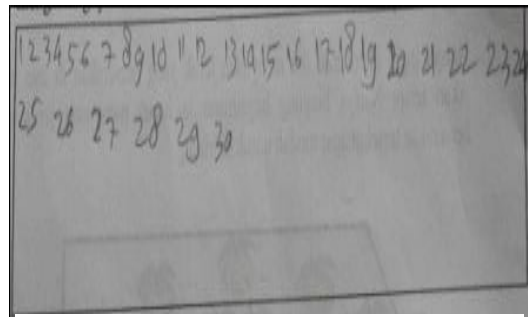 1 2 3 4 5 6 7 8 9 10 11 12 13 14 15 16 17 18 19 20 21 22 23 24
25 26 27 28 29 30